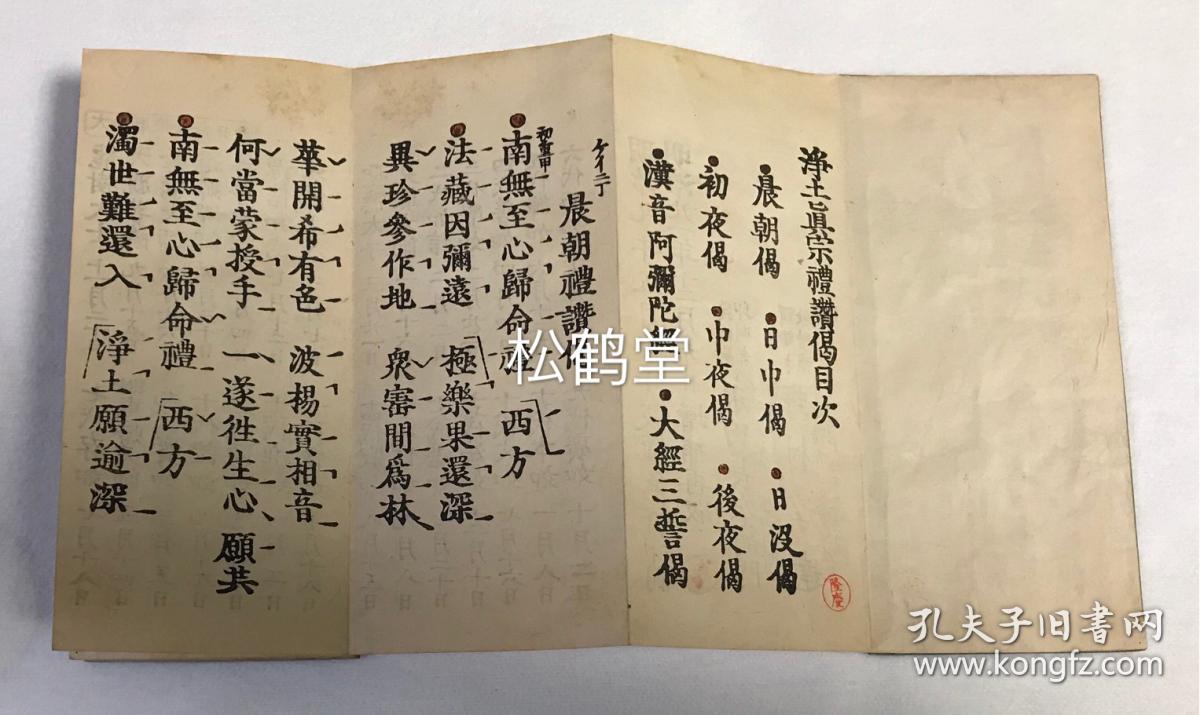 淨土眞宗禮讚偈目次
晨朝偈 日中偈 日没偈
初夜偈 中夜偈 後夜偈
漢音阿彌陀經 大經三誓偈
晨朝禮讚偈
南無至心歸命禮 西方
法藏因彌遠 極樂果還深
異珍參作地 衆寳間爲林
華開希有色 波楊實相音
何當蒙授手 一遂徃生心 願共
南無至心歸命禮 西方
濁世難還入 淨土願逾深
松鹤堂
孔夫子旧书网
www.kongfz.com